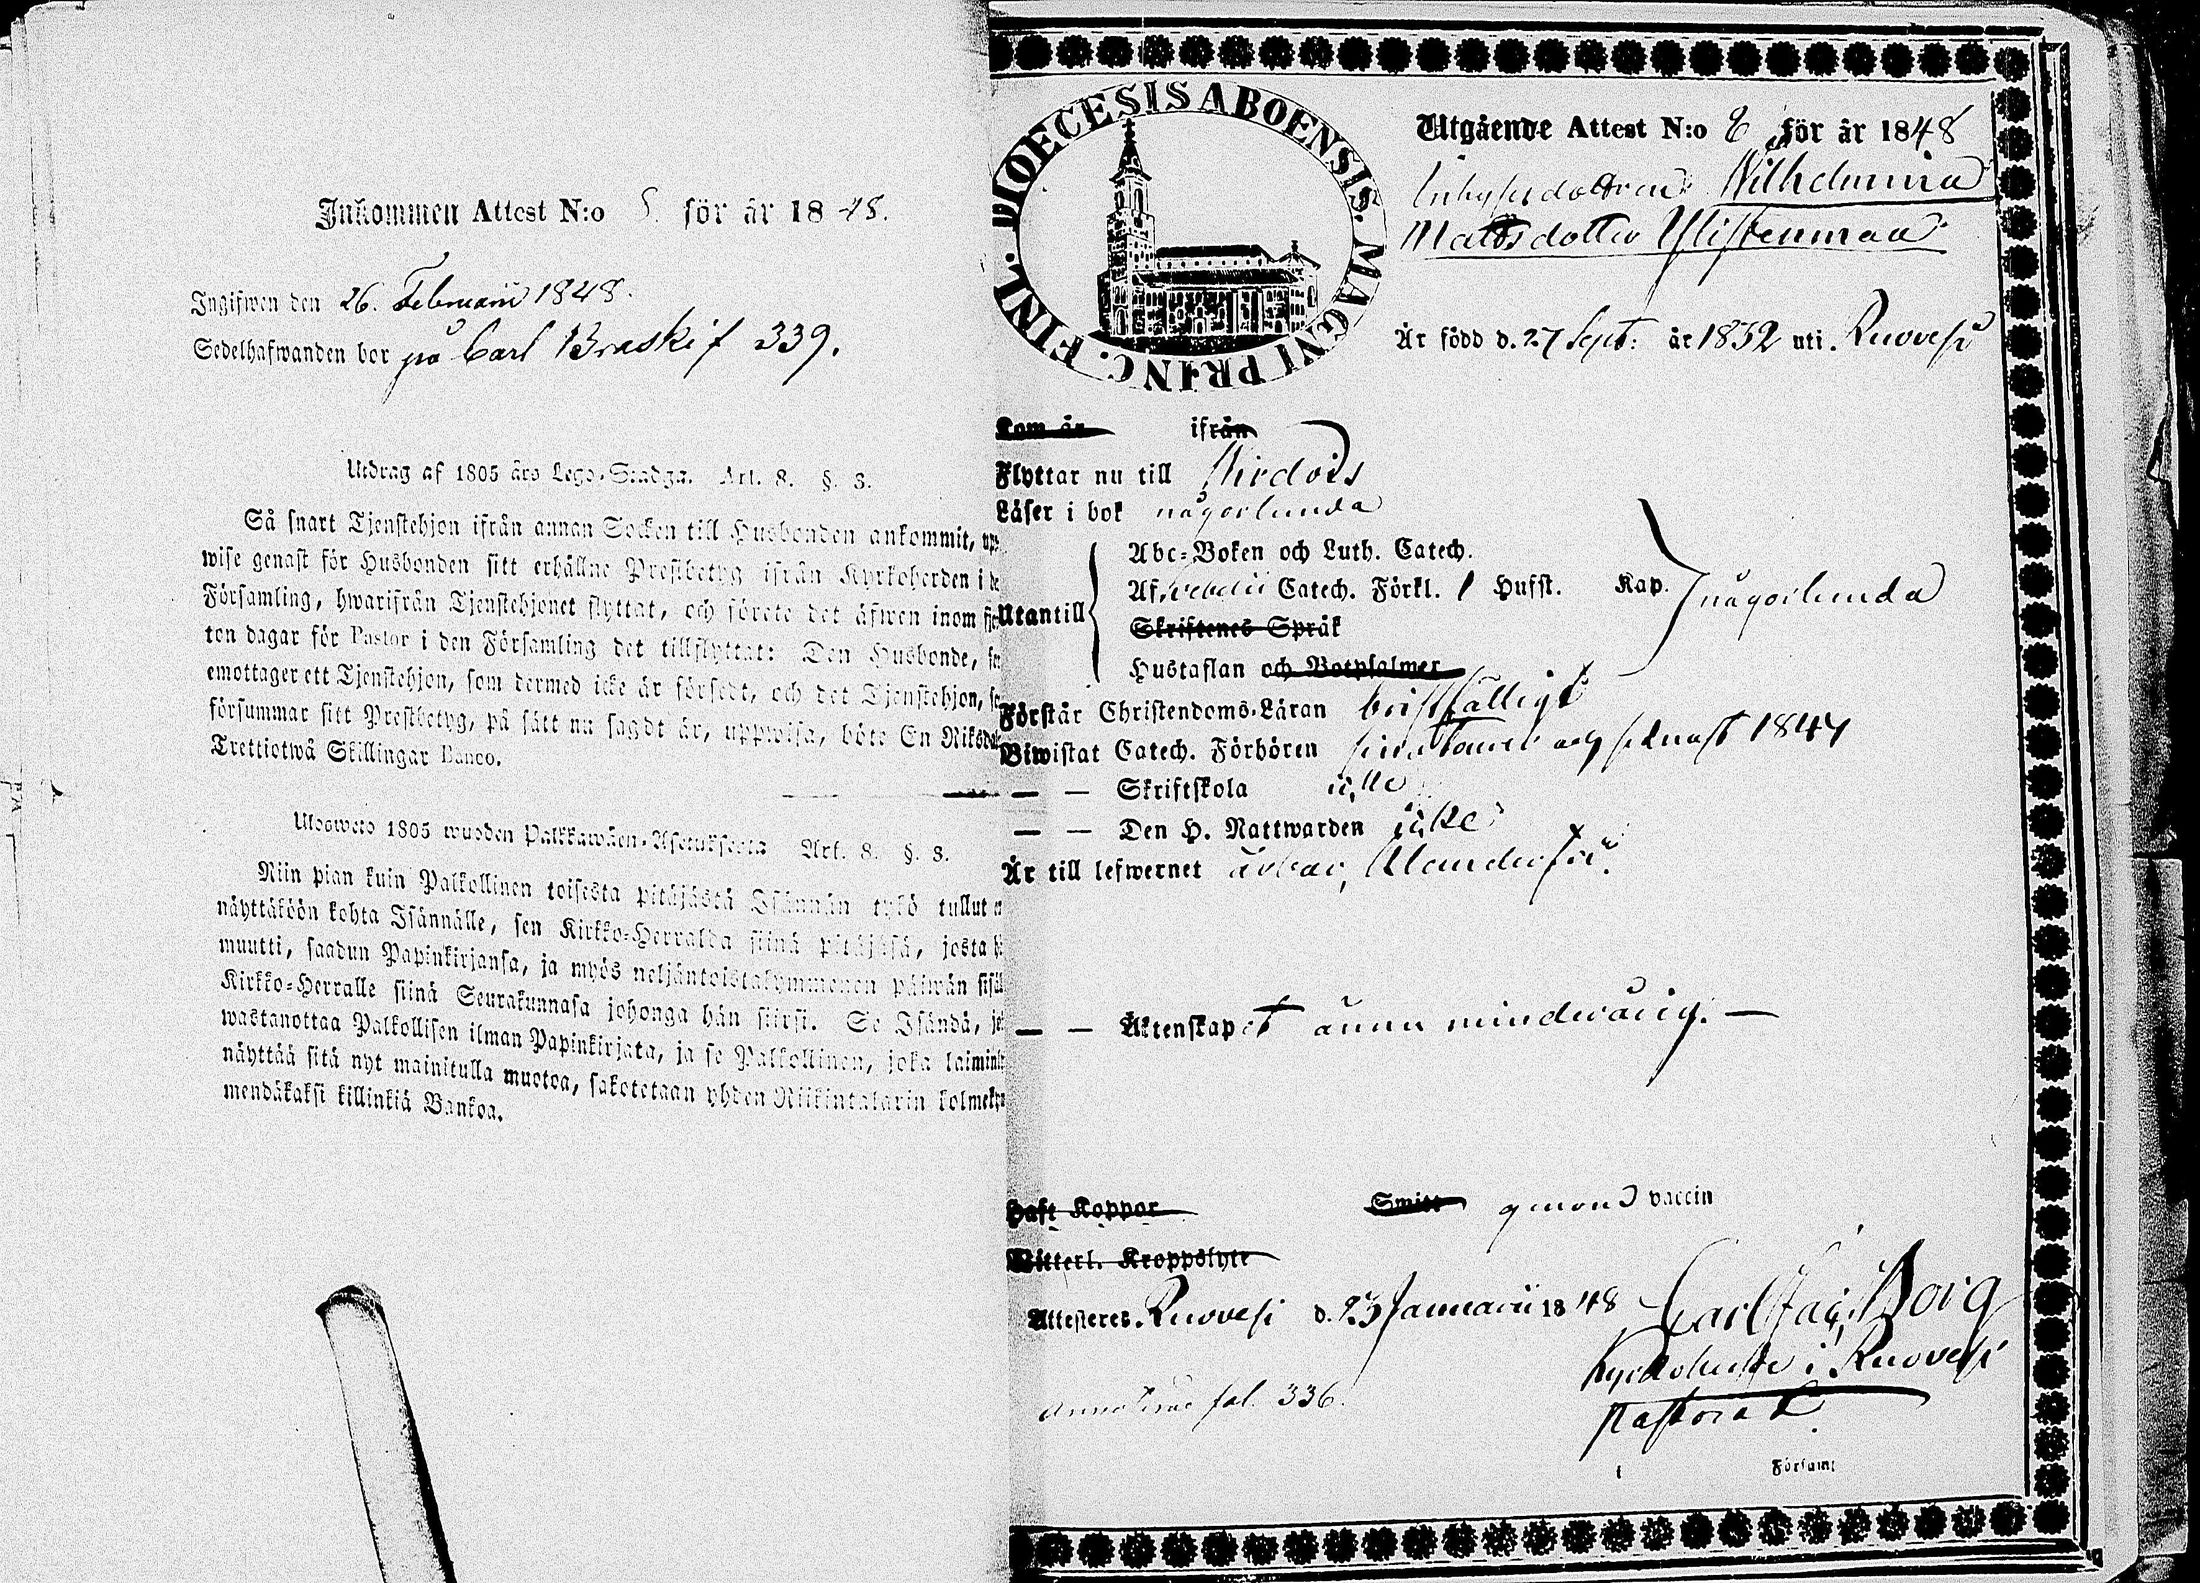 Inkommen Attest N:o för år 1848.
Ingifwen den 26. Februarii 1848.
Sedelhafwanden bor på Carl Braski f 339.
Utdrag af 1805 års Lego-Stadga. Art. 8. §. 3.
Så snart Tjenstehjon ifrån annan Socken till Husbonden ankommit, upp
wise genast för Husbonden sitt erhållne Prestbetyg ifrån Kyrkoherden i de
Församling, hwarifrån Tjenstehjonet flyttat, och förete det äfwen inom fjor
ton dagar för Pastor i den Församling det tillflyttat: Den Husbonde, so
emottager ett Tjenstehjon, som dermed icke är försedt, och det Tjenstehjon, so
försummar sitt Prestbetyg, på sätt nu sagdt är, uppwisa, böte En Riksdale
Trettiotwå Skillingar Banco.
Ulosweto 1805 wuoden Palkkawäen-Asetuksesta Art. 8. §. 3.
Niin pian kuin Palkollinen toisesta pitäjästä Isännän tykö tullut on
näyttäköön kohta Isännälle, sen Kirkko-Herralda siinä pitäjäsä, josta hä
muutti, saadun Papinkirjansa, ja myös neljäntoistakymmenen päiwän sisäl
Kirkko-Herralle siinä Seurakunnasa johonga hän siirsi. Se Isändä, jo
wastanottaa Palkollisen ilman Papinkirjata, ja se Palkollinen, joka laiminly
näyttää sitä nyt mainitulla muotoa, sakotetaan yhden Riikintalarin kolmeky
mendäkaksi killinkiä Bankoa.
DIOECESIS ABOENSIS. MAGNI PRINC. FINL.
Utgående Attest N:o 8 för år 1848
Inhysesdottren Wilhelmina
Mattsdotter Ylistenmaa
Är född d. 27 Sept: år 1832 uti Ruovesi
Kom år ifrån
Flyttar nu till Wirdois
Läser i bok någorlunda
Utantill
Abc-Boken och Luth. Catech.
Af Svebelii Catech. Förkl. 1 Hufst. Kap. någorlunda
Skriftenes Språk
Hustaflan och Botpsalmer
Förstår Christendoms-Läran bristfälligt
Biwistat Catech. Förhören sina tourer och sednast 1847
— — Skriftskola icke
— — Den H. Nattwarden icke
Är till lefwernet ärbar, klanderfri.
— — Äktenskapet ännu minderårig. —
Haft Koppor Smitt genom vaccin
Witterl. Kroppslyte
Attesteres. Ruovesi d. 23 Januarii 1848 Carl Borg
Kyrkoherde i Ruovesi
Pastorat
Annoterad fol. 336.
i Församl